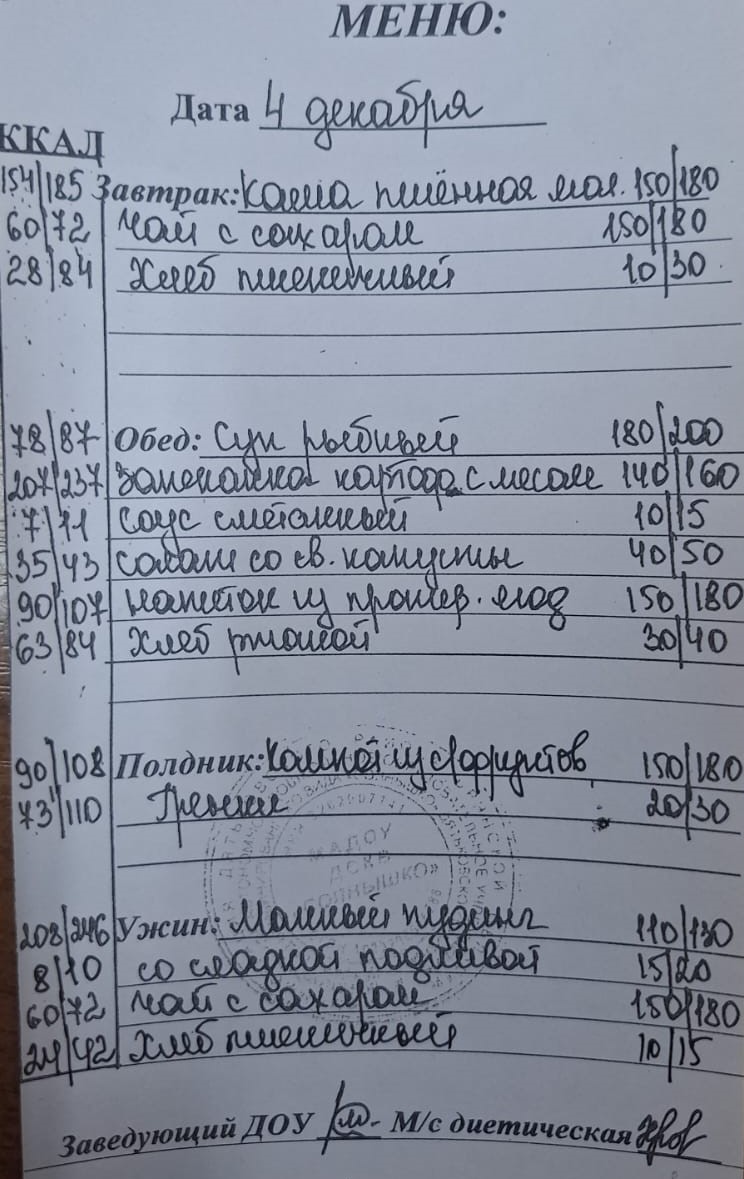 МЕНЮ:
Дата 4 декабря
ККАД
154/185 Завтрак: Каша пшённая мол. 150/180
60/72 Чай с сахаром 150/180
28/84 Хлеб пшеничный 10/30
78/87 Обед: Суп рыбный 180/200
207/237 Запеканка картоф. с мясом 140/160
7/11 Соус сметанный 10/15
35/43 Салат со св. капусты 40/50
90/107 Напиток из протер. ягод 150/180
63/84 Хлеб ржаной 30/40
90/108 Полдник: Компот из с/фруктов 150/180
73/110 Гренки 20/30
МАДОУ
ДСКВ
СОЛНЫШКО»
208/246 Ужин: Манный пудинг 110/130
8/10 со сладкой подливой 15/20
60/72 Чай с сахаром 150/180
24/42 Хлеб пшеничный 10/15
Заведующий ДОУ М/с диетическая